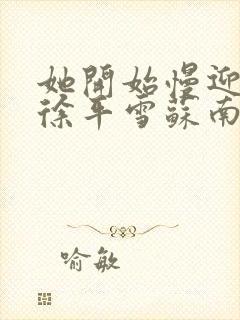 她開始慢迎
徐平雪蘇南
喻敏